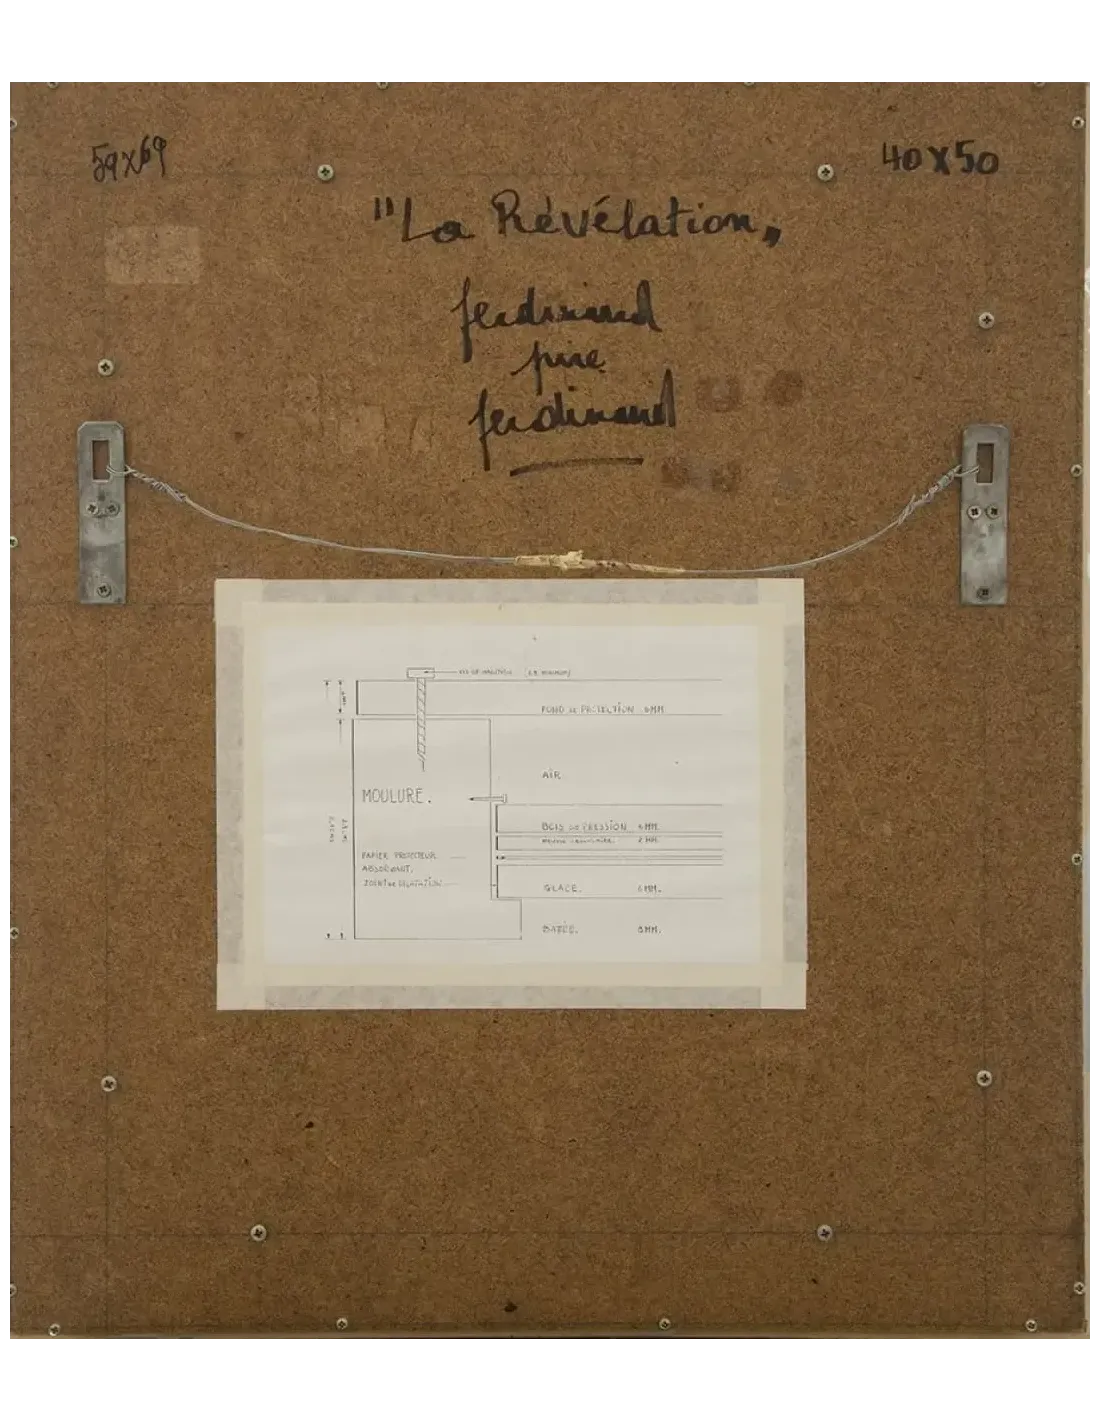 59x69
40x50
"La Révélation„
ferdinand
pire
ferdinand
FOND de PROTECTION 6MM
AIR
MOULURE.
BOIS de PRESSION 4 MM.
2 MM.
PAPIER PROTECTEUR
ABSORBANT.
JOINT de DILATATION
GLACE. 6 MM.
BATÉE. 8 MM.